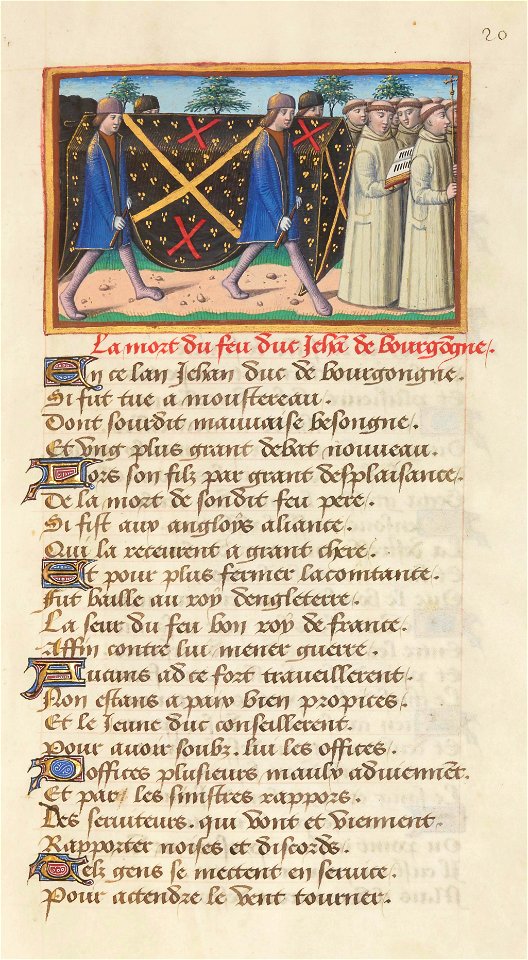 20
La mort du feu duc Jehan de bourgongne.
En ce lan Jehan duc de bourgongne.
Si fut tue a moustereau.
Dont sourdit mauuaise besongne.
Et vng plus grant debat nouueau.
Lors son filz par grant desplaisance.
De la mort de sondit feu pere.
Si fist aux angloys aliance.
Qui la receurent a grant chere.
Et pour plus fermer lacointance.
Fut baille au roy dengleterre.
La seur du feu bon roy de france.
Affin contre lui mener guerre.
Aucuns ad ce fort traueillerent.
Non estans a paix bien propices.
Et le Jeune duc conseillerent.
Pour auoir soubz lui les offices.
Doffices plusieurs maulx aduiennent.
Et par les sinistres rappors.
Des seruiteurs qui vont et viennent.
Rapporter noises et discords.
Telz gens se mectent en seruice.
Pour actendre le vent tourner.